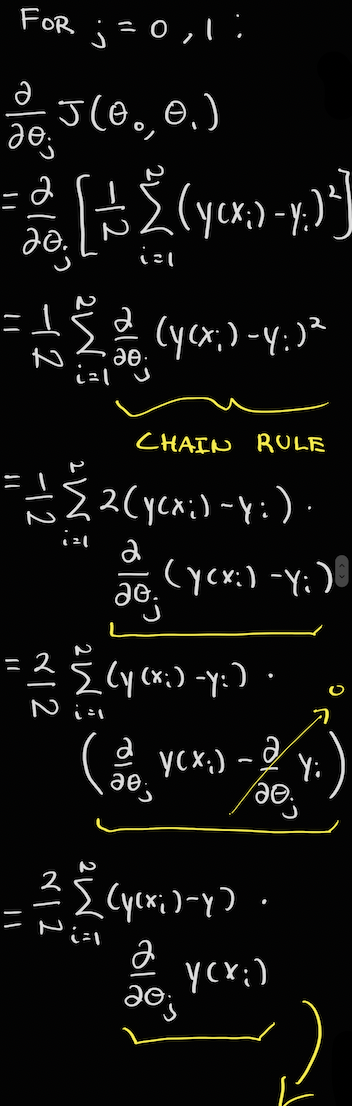 FOR j = 0, 1 :
∂/∂θⱼ J(θ₀, θ₁)
= ∂/∂θⱼ [ 1/N Σᵢ₌₁ᴺ (y(xᵢ) - yᵢ)² ]
= 1/N Σᵢ₌₁ᴺ ∂/∂θⱼ (y(xᵢ) - yᵢ)²
CHAIN RULE
= 1/N Σᵢ₌₁ᴺ 2(y(xᵢ) - yᵢ) ·
∂/∂θⱼ (y(xᵢ) - yᵢ)
= 2/N Σᵢ₌₁ᴺ (y(xᵢ) - yᵢ) ·
0
( ∂/∂θⱼ y(xᵢ) - ∂/∂θⱼ yᵢ )
= 2/N Σᵢ₌₁ᴺ (y(xᵢ) - y) ·
∂/∂θⱼ y(xᵢ)